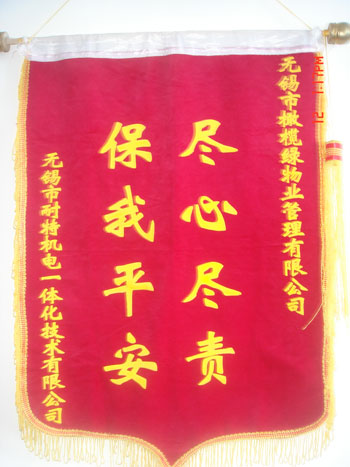 无锡市橄榄绿物业管理有限公司
尽心尽责
保我平安
无锡市耐特机电一体化技术有限公司